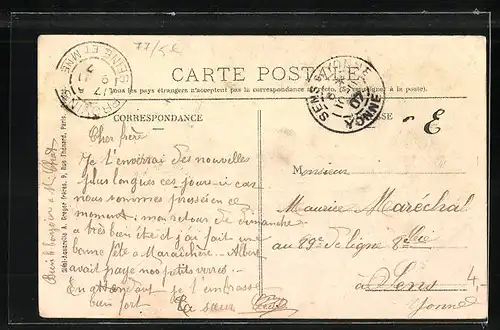 77/SE
CARTE POSTALE
Tous les pays étrangers n'acceptent pas la correspondance au recto.
CORRESPONDANCE
SEINE ET MNE
SENS
YONNE
E
Cher frère
Je t'enverrai des nouvelles
plus longues ces jours-ici car
nous sommes pressé en ce
moment. mon retour de Dimanche
a très bien été j'ai fait une
bonne fête à Albert
avait payé nos petits verres
En attendant je t'embrasse
bien fort
Ta sœur
Bien le bonjour à Mr
A. Breger Frères, 9, Rue Thénard, Paris.
Monsieur
Maurice Maréchal
au 89e de ligne 8e Cie
à Sens
Yonne
4,